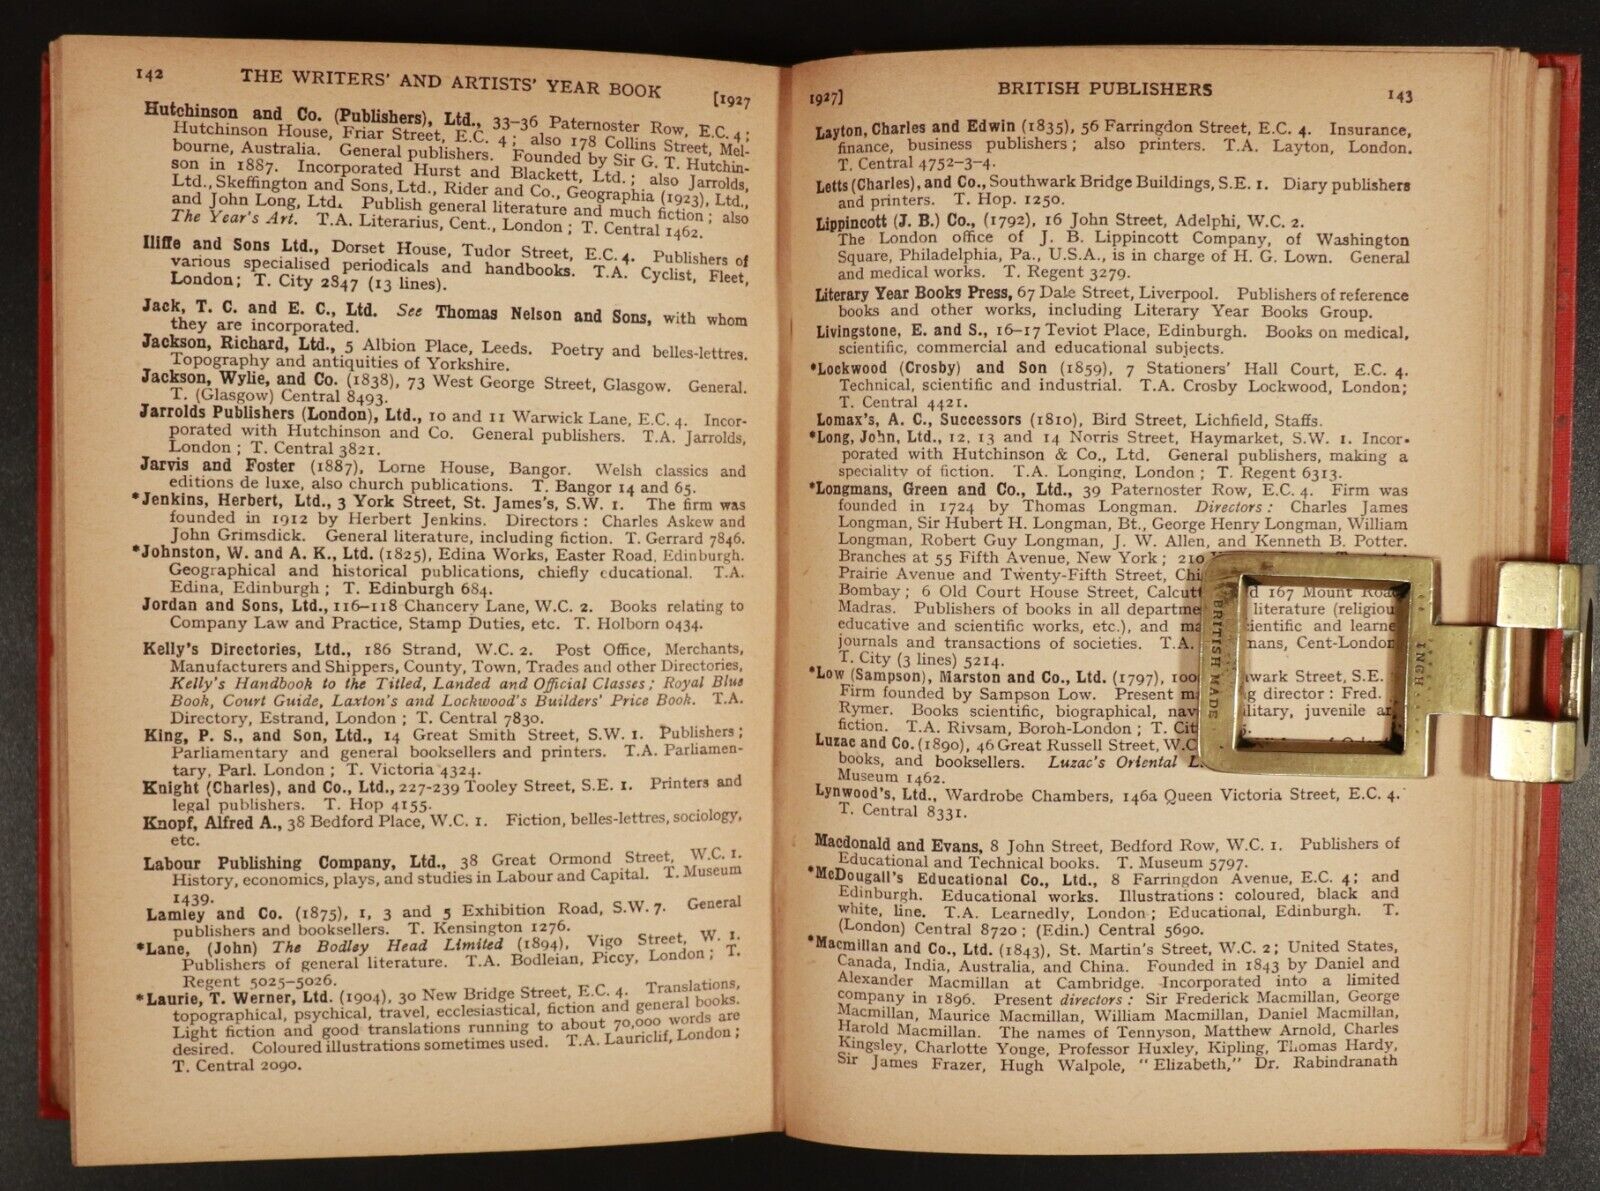 142 THE WRITERS' AND ARTISTS' YEAR BOOK [1927
Hutchinson and Co. (Publishers), Ltd., 33–36 Paternoster Row, E.C. 4;
Hutchinson House, Friar Street, E.C. 4; also 178 Collins Street, Mel-
bourne, Australia. General publishers. Founded by Sir G. T. Hutchin-
son in 1887. Incorporated Hurst and Blackett, Ltd.; also Jarrolds,
Ltd., Skeffington and Sons, Ltd., Rider and Co., Geographia (1923), Ltd.,
and John Long, Ltd. Publish general literature and much fiction; also
The Year's Art. T.A. Literarius, Cent., London; T. Central 1462.
Iliffe and Sons Ltd., Dorset House, Tudor Street, E.C. 4. Publishers of
various specialised periodicals and handbooks. T.A. Cyclist, Fleet,
London; T. City 2847 (13 lines).
Jack, T. C. and E. C., Ltd. See Thomas Nelson and Sons, with whom
they are incorporated.
Jackson, Richard, Ltd., 5 Albion Place, Leeds. Poetry and belles-lettres.
Topography and antiquities of Yorkshire.
Jackson, Wylie, and Co. (1838), 73 West George Street, Glasgow. General.
T. (Glasgow) Central 8493.
Jarrolds Publishers (London), Ltd., 10 and 11 Warwick Lane, E.C. 4. Incor-
porated with Hutchinson and Co. General publishers. T.A. Jarrolds,
London; T. Central 3821.
Jarvis and Foster (1887), Lorne House, Bangor. Welsh classics and
editions de luxe, also church publications. T. Bangor 14 and 65.
*Jenkins, Herbert, Ltd., 3 York Street, St. James's, S.W. 1. The firm was
founded in 1912 by Herbert Jenkins. Directors: Charles Askew and
John Grimsdick. General literature, including fiction. T. Gerrard 7846.
*Johnston, W. and A. K., Ltd. (1825), Edina Works, Easter Road, Edinburgh.
Geographical and historical publications, chiefly educational. T.A.
Edina, Edinburgh; T. Edinburgh 684.
Jordan and Sons, Ltd., 116–118 Chancery Lane, W.C. 2. Books relating to
Company Law and Practice, Stamp Duties, etc. T. Holborn 0434.
Kelly's Directories, Ltd., 186 Strand, W.C. 2. Post Office, Merchants,
Manufacturers and Shippers, County, Town, Trades and other Directories,
Kelly's Handbook to the Titled, Landed and Official Classes; Royal Blue
Book, Court Guide, Laxton's and Lockwood's Builders' Price Book. T.A.
Directory, Estrand, London; T. Central 7830.
King, P. S., and Son, Ltd., 14 Great Smith Street, S.W. 1. Publishers;
Parliamentary and general booksellers and printers. T.A. Parliamen-
tary, Parl. London; T. Victoria 4324.
Knight (Charles), and Co., Ltd., 227-239 Tooley Street, S.E. 1. Printers and
legal publishers. T. Hop 4155.
Knopf, Alfred A., 38 Bedford Place, W.C. 1. Fiction, belles-lettres, sociology,
etc.
Labour Publishing Company, Ltd., 38 Great Ormond Street, W.C. 1.
History, economics, plays, and studies in Labour and Capital. T. Museum
1439.
Lamley and Co. (1875), 1, 3 and 5 Exhibition Road, S.W. 7. General
publishers and booksellers. T. Kensington 1276.
*Lane, (John) The Bodley Head Limited (1894), Vigo Street, W. 1.
Publishers of general literature. T.A. Bodleian, Piccy, London; T.
Regent 5025–5026.
*Laurie, T. Werner, Ltd. (1904), 30 New Bridge Street, E.C. 4. Translations,
topographical, psychical, travel, ecclesiastical, fiction and general books.
Light fiction and good translations running to about 70,000 words are
desired. Coloured illustrations sometimes used. T.A. Lauriclif, London;
T. Central 2090.
1927] BRITISH PUBLISHERS 143
Layton, Charles and Edwin (1835), 56 Farringdon Street, E.C. 4. Insurance,
finance, business publishers; also printers. T.A. Layton, London.
T. Central 4752–3–4.
Letts (Charles), and Co., Southwark Bridge Buildings, S.E. 1. Diary publishers
and printers. T. Hop. 1250.
Lippincott (J. B.) Co., (1792), 16 John Street, Adelphi, W.C. 2.
The London office of J. B. Lippincott Company, of Washington
Square, Philadelphia, Pa., U.S.A., is in charge of H. G. Lown. General
and medical works. T. Regent 3279.
Literary Year Books Press, 67 Dale Street, Liverpool. Publishers of reference
books and other works, including Literary Year Books Group.
Livingstone, E. and S., 16–17 Teviot Place, Edinburgh. Books on medical,
scientific, commercial and educational subjects.
*Lockwood (Crosby) and Son (1859), 7 Stationers' Hall Court, E.C. 4.
Technical, scientific and industrial. T.A. Crosby Lockwood, London;
T. Central 4421.
Lomax's, A. C., Successors (1810), Bird Street, Lichfield, Staffs.
*Long, John, Ltd., 12, 13 and 14 Norris Street, Haymarket, S.W. 1. Incor-
porated with Hutchinson & Co., Ltd. General publishers, making a
speciality of fiction. T.A. Longing, London; T. Regent 6313.
*Longmans, Green and Co., Ltd., 39 Paternoster Row, E.C. 4. Firm was
founded in 1724 by Thomas Longman. Directors: Charles James
Longman, Sir Hubert H. Longman, Bt., George Henry Longman, William
Longman, Robert Guy Longman, J. W. Allen, and Kenneth B. Potter.
Branches at 55 Fifth Avenue, New York; 210
Prairie Avenue and Twenty-Fifth Street, Chi
Bombay; 6 Old Court House Street, Calcut d 167 Mount Road
Madras. Publishers of books in all departme literature (religiou
educative and scientific works, etc.), and ma ientific and learne
journals and transactions of societies. T.A. mans, Cent-London
T. City (3 lines) 5214.
*Low (Sampson), Marston and Co., Ltd. (1797), 100 wark Street, S.E.
Firm founded by Sampson Low. Present m g director: Fred.
Rymer. Books scientific, biographical, nav litary, juvenile an
fiction. T.A. Rivsam, Boroh-London; T. Cit
Luzac and Co. (1890), 46 Great Russell Street, W.C
books, and booksellers. Luzac's Oriental L
Museum 1462.
Lynwood's, Ltd., Wardrobe Chambers, 146a Queen Victoria Street, E.C. 4.
T. Central 8331.
Macdonald and Evans, 8 John Street, Bedford Row, W.C. 1. Publishers of
Educational and Technical books. T. Museum 5797.
*McDougall's Educational Co., Ltd., 8 Farringdon Avenue, E.C. 4; and
Edinburgh. Educational works. Illustrations: coloured, black and
white, line. T.A. Learnedly, London; Educational, Edinburgh. T.
(London) Central 8720; (Edin.) Central 5690.
*Macmillan and Co., Ltd. (1843), St. Martin's Street, W.C. 2; United States,
Canada, India, Australia, and China. Founded in 1843 by Daniel and
Alexander Macmillan at Cambridge. Incorporated into a limited
company in 1896. Present directors: Sir Frederick Macmillan, George
Macmillan, Maurice Macmillan, William Macmillan, Daniel Macmillan,
Harold Macmillan. The names of Tennyson, Matthew Arnold, Charles
Kingsley, Charlotte Yonge, Professor Huxley, Kipling, Thomas Hardy,
Sir James Frazer, Hugh Walpole, "Elizabeth," Dr. Rabindranath
BRITISH MADE